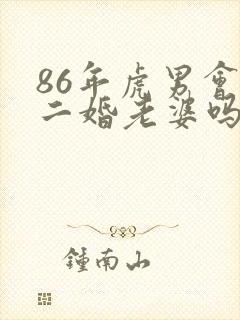 86年虎男會
二婚老婆吗
鍾南山